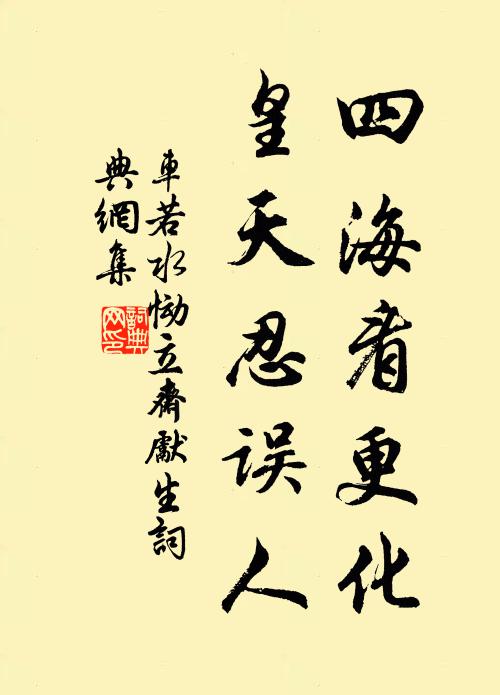 四海看更化
皇天忍误人
車若水慟立齋獻生詞
典網集
詞典网印